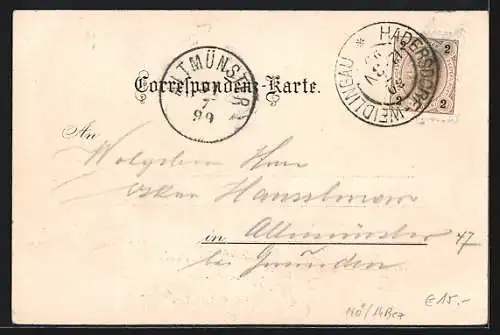 HADERSDORF-WEIDLINGAU *
2
2
2
ALTMÜNSTER
7
99
Correspondenz-Karte.
An
Wolgeboren Herrn
Oskar
in Altmünster
bei Gmunden
47
€ 15.-